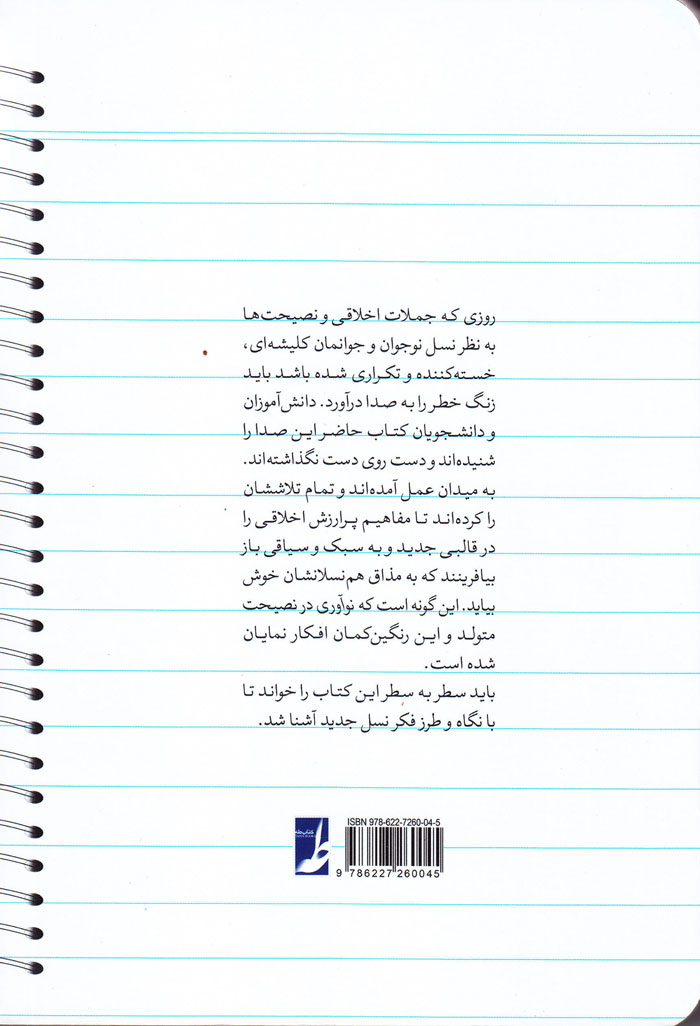 روزی که جملات اخلاقی و نصیحت‌ها
به نظر نسل نوجوان و جوانمان کلیشه‌ای،
خسته‌کننده و تکراری شده باشد باید
زنگ خطر را به صدا درآورد. دانش‌آموزان
و دانشجویان کتاب حاضر این صدا را
شنیده‌اند و دست روی دست نگذاشته‌اند.
به میدان عمل آمده‌اند و تمام تلاششان
را کرده‌اند تا مفاهیم پرارزش اخلاقی را
در قالبی جدید و به سبک و سیاقی باز
بیافرینند که به مذاق هم‌نسلانشان خوش
بیاید. این گونه است که نوآوری در نصیحت
متولد و این رنگین‌کمان افکار نمایان
شده است.
باید سطر به سطر این کتاب را خواند تا
با نگاه و طرز فکر نسل جدید آشنا شد.
ISBN 978-622-7260-04-5
9 786227 260045
کتاب طه